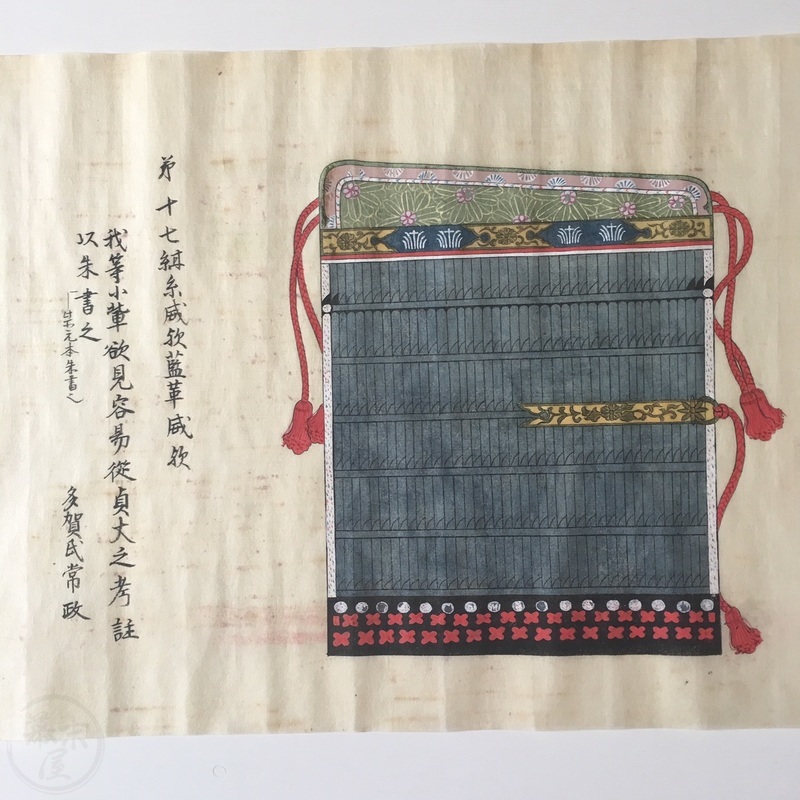 第十七緂糸威欤藍革威欤
我等小輩欲見容易從貞丈之考註
以朱書之
朱元本朱書之
多賀氏常政